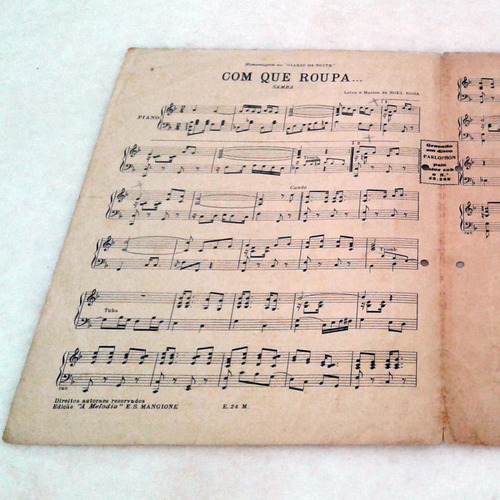 Homenagem ao "DIARIO DA NOITE"
COM QUE ROUPA...
SAMBA
Letra e Musica de NOEL ROSA
PIANO
Gravado
em disco
PARLOPHON
pelo
autor sob
o N.
13.245
Tromb.
Canto
Tromb.
Tuba
Direitos autoraes reservados
Edição "A Melodia" E.S. MANGIONE
E. 24 M.